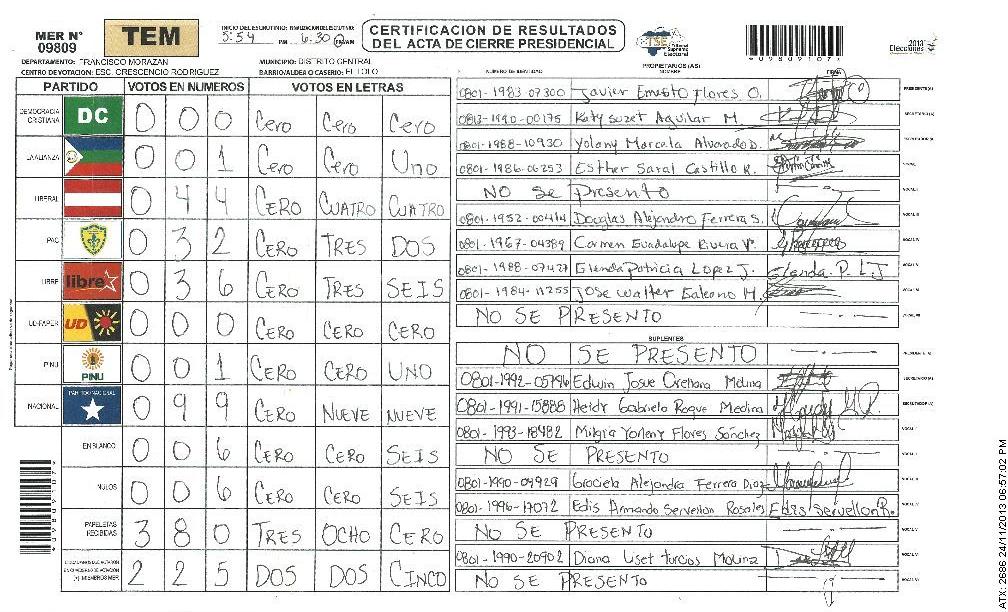 MER N° 09809
TEM
INICIO DEL ESCRUTINIO: FINALIZACION DEL ESCRUTINIO:
5:54 PM 6:30 AM
CERTIFICACION DE RESULTADOS
DEL ACTA DE CIERRE PRESIDENCIAL
TSE Tribunal Supremo Electoral
*09809107*
2013 Elecciones
DEPARTAMENTO: FRANCISCO MORAZAN
MUNICIPIO: DISTRITO CENTRAL
CENTRO DE VOTACION: ESC. CRESCENCIO RODRIGUEZ
BARRIO/ALDEA O CASERIO: El LOLO
PARTIDO VOTOS EN NUMEROS VOTOS EN LETRAS
DEMOCRACIA CRISTIANA DC 0 0 0 Cero Cero Cero
LA ALIANZA 0 0 1 Cero Cero Uno
LIBERAL 0 4 4 CERO CUATRO CUATRO
PAC 0 3 2 CERO TRES DOS
LIBRE libre 0 3 6 CERO TRES SEIS
UD-FAPER UD 0 0 0 CERO CERO CERO
PINU PINU 0 0 1 CERO CERO UNO
NACIONAL PARTIDO NACIONAL 0 9 9 CERO NUEVE NUEVE
EN BLANCO 0 0 6 CERO CERO SEIS
NULOS 0 0 6 CERO CERO SEIS
PAPELETAS RECIBIDAS 3 8 0 TRES OCHO CERO
2 2 5 DOS DOS CINCO
PROPIETARIOS (AS)
NUMERO DE IDENTIDAD NOMBRE FIRMA
0801-1983-07300 Javier Ernesto Flores O. PRESIDENTE(A)
0813-1990-00175 Katy Suzet Aguilar M. SECRETARIO(A)
0801-1968-10930 Yolany Marcela Alvarado D.
0801-1986-06253 Esther Saraí Castillo R.
NO Se Presento
0801-1952-00414 Douglas Alejandro Ferrera S.
0801-1967-04389 Carmen Guadalupe Rivera V.
0801-1988-07427 Glenda Patricia Lopez J. Glenda P. L J
0801-1984-11255 Jose Walter Galeano M.
NO SE PRESENTO
SUPLENTES
NO SE PRESENTO
0801-1992-05796 Edwin Josue Orellana Molina
0801-1991-15888 Heidy Gabriela Roque Medina
0801-1993-18482 Milgia Yorleny Flores Sánchez
NO SE PRESENTO
0801-1990-04929 Graciela Alejandra Ferrera Diaz
0801-1996-17072 Edis Armando Servellon Rosales Edis Servellon R.
NO SE PRESENTO
0801-1990-20902 Diana Liset Turcios Molina
NO SE PRESENTO
*09809107*
ATX: 2686 24/11/2013 06:57:02 PM